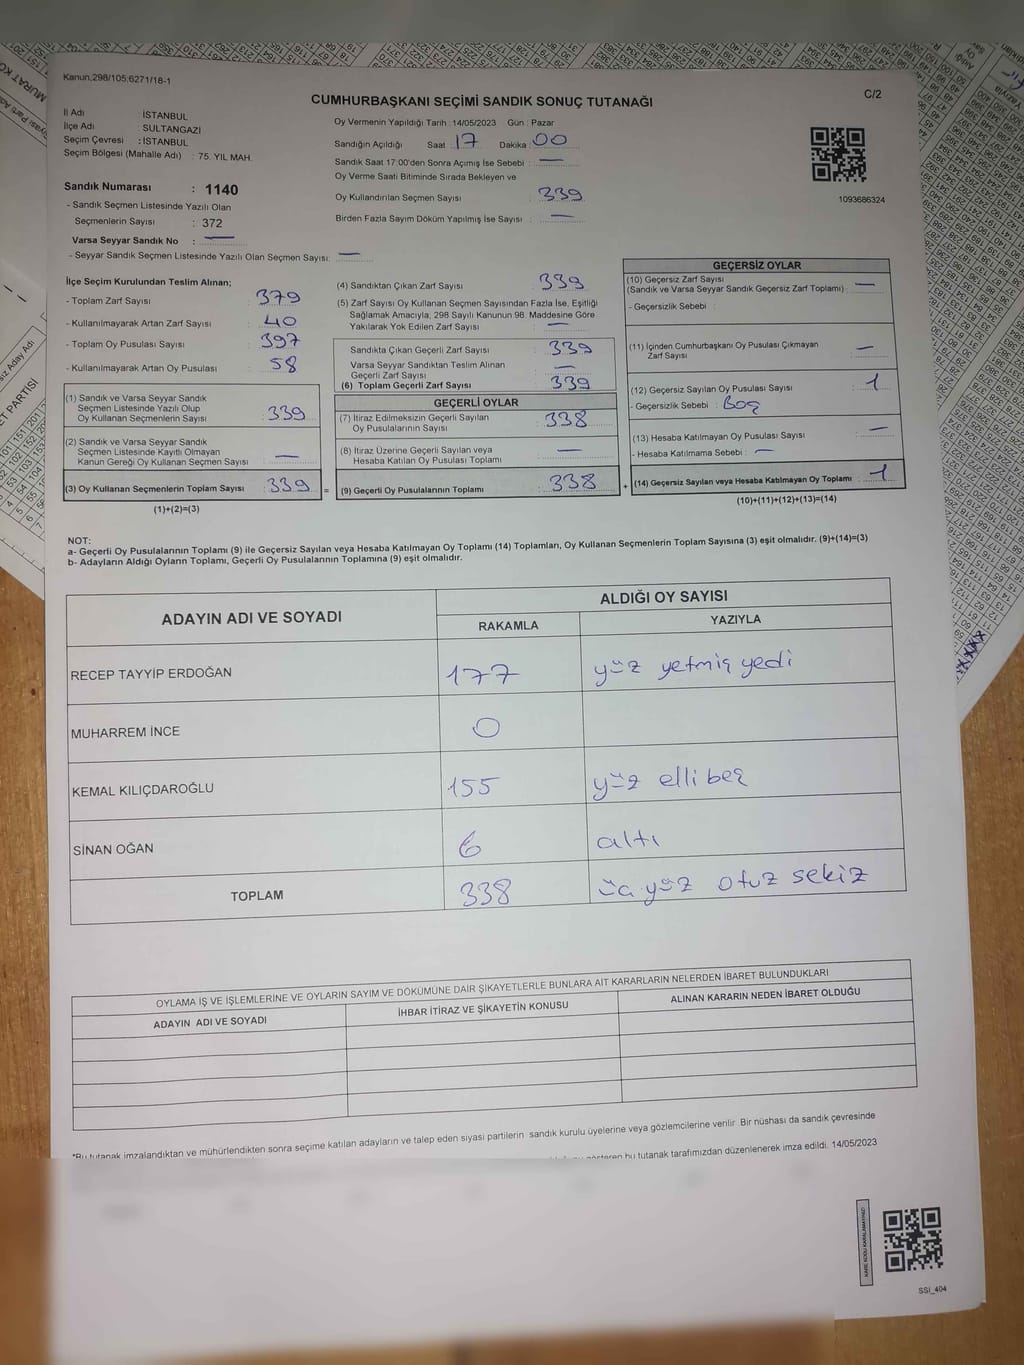 Kanun,298/105;6271/18-1
C/2
CUMHURBAŞKANI SEÇİMİ SANDIK SONUÇ TUTANAĞI
İl Adı : İSTANBUL
İlçe Adı : SULTANGAZİ
Seçim Çevresi : İSTANBUL
Seçim Bölgesi (Mahalle Adı) : 75. YIL MAH.
Sandık Numarası : 1140
- Sandık Seçmen Listesinde Yazılı Olan
Seçmenlerin Sayısı : 372
Varsa Seyyar Sandık No : —
- Seyyar Sandık Seçmen Listesinde Yazılı Olan Seçmen Sayısı: —
Oy Vermenin Yapıldığı Tarih :14/05/2023 Gün : Pazar
Sandığın Açıldığı Saat :17 Dakika :00
Sandık Saat 17:00'den Sonra Açımış İse Sebebi : —
Oy Verme Saati Bitiminde Sırada Bekleyen ve
Oy Kullandırılan Seçmen Sayısı : 339
Birden Fazla Sayım Döküm Yapılmış İse Sayısı : —
1093686324
İlçe Seçim Kurulundan Teslim Alınan;
- Toplam Zarf Sayısı : 379
- Kullanılmayarak Artan Zarf Sayısı : 40
- Toplam Oy Pusulası Sayısı : 397
- Kullanılmayarak Artan Oy Pusulası : 58
(1) Sandık ve Varsa Seyyar Sandık
Seçmen Listesinde Yazılı Olup
Oy Kullanan Seçmenlerin Sayısı : 339
(2) Sandık ve Varsa Seyyar Sandık
Seçmen Listesinde Kayıtlı Olmayan
Kanun Gereği Oy Kullanan Seçmen Sayısı : —
(3) Oy Kullanan Seçmenlerin Toplam Sayısı : 339 =
(1)+(2)=(3)
(4) Sandıktan Çıkan Zarf Sayısı : 339
(5) Zarf Sayısı Oy Kullanan Seçmen Sayısından Fazla İse, Eşitliği
Sağlamak Amacıyla, 298 Sayılı Kanunun 98. Maddesine Göre
Yakılarak Yok Edilen Zarf Sayısı : —
Sandıkta Çıkan Geçerli Zarf Sayısı : 339
Varsa Seyyar Sandıktan Teslim Alınan
Geçerli Zarf Sayısı : —
(6) Toplam Geçerli Zarf Sayısı : 339
GEÇERLİ OYLAR
(7) İtiraz Edilmeksizin Geçerli Sayılan
Oy Pusulalarının Sayısı : 338
(8) İtiraz Üzerine Geçerli Sayılan veya
Hesaba Katılan Oy Pusulası Toplamı : —
(9) Geçerli Oy Pusulalarının Toplamı : 338 +
GEÇERSİZ OYLAR
(10) Geçersiz Zarf Sayısı
(Sandık ve Varsa Seyyar Sandık Geçersiz Zarf Toplamı) : —
- Geçersizlik Sebebi :
(11) İçinden Cumhurbaşkanı Oy Pusulası Çıkmayan
Zarf Sayısı : —
(12) Geçersiz Sayılan Oy Pusulası Sayısı : 1
- Geçersizlik Sebebi : Boş
(13) Hesaba Katılmayan Oy Pusulası Sayısı : —
- Hesaba Katılmama Sebebi : —
(14) Geçersiz Sayılan veya Hesaba Katılmayan Oy Toplamı : 1
(10)+(11)+(12)+(13)=(14)
NOT:
a- Geçerli Oy Pusulalarının Toplamı (9) ile Geçersiz Sayılan veya Hesaba Katılmayan Oy Toplamı (14) Toplamları, Oy Kullanan Seçmenlerin Toplam Sayısına (3) eşit olmalıdır. (9)+(14)=(3)
b- Adayların Aldığı Oyların Toplamı, Geçerli Oy Pusulalarının Toplamına (9) eşit olmalıdır.
ADAYIN ADI VE SOYADI
ALDIĞI OY SAYISI
RAKAMLA YAZIYLA
RECEP TAYYİP ERDOĞAN 177 yüz yetmiş yedi
MUHARREM İNCE 0
KEMAL KILIÇDAROĞLU 155 yüz elli beş
SİNAN OĞAN 6 altı
TOPLAM 338 üç yüz otuz sekiz
OYLAMA İŞ VE İŞLEMLERİNE VE OYLARIN SAYIM VE DÖKÜMÜNE DAİR ŞİKAYETLERLE BUNLARA AİT KARARLARIN NELERDEN İBARET BULUNDUKLARI
ADAYIN ADI VE SOYADI
İHBAR İTİRAZ VE ŞİKAYETİN KONUSU
ALINAN KARARIN NEDEN İBARET OLDUĞU
*Bu tutanak imzalandıktan ve mühürlendikten sonra seçime katılan adayların ve talep eden siyasi partilerin sandık kurulu üyelerine veya gözlemcilerine verilir. Bir nüshası da sandık çevresinde
bu tutanak tarafımızdan düzenlenerek imza edildi. 14/05/2023
KARE KODU KARALAMAYINIZ!
SSİ_404